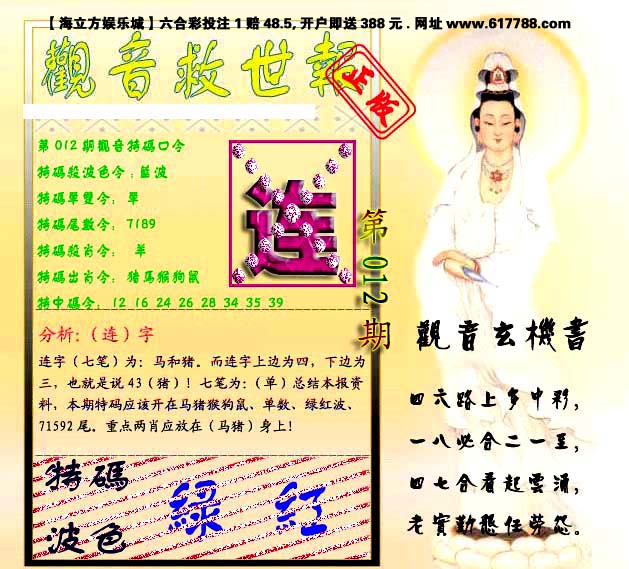 【海立方娱乐城】六合彩投注1赔48.5,开户即送388元.网址www.617788.com
觀音救世報
正本
第012期觀音特碼口令
特碼殺波色令:藍波
特碼單雙令: 單
特碼尾數令: 7189
特碼殺肖令: 羊
特碼出肖令: 猪馬猴狗鼠
特中碼令: 12 16 24 26 28 34 35 39
连
第012期
分析:(连)字
连字(七笔)为: 马和猪。而连字上边为四, 下边为
三, 也就是说43(猪)! 七笔为:(单)总结本报资
料, 本期特码应该开在马猪猴狗鼠、单数、绿红波、
71592尾。重点两肖应放在(马猪)身上!
特碼
波色
綠 红
觀音玄機書
四六路上多中彩,
一八必合二一至,
四七合看起雲涌,
老實勤懇任勞怨。